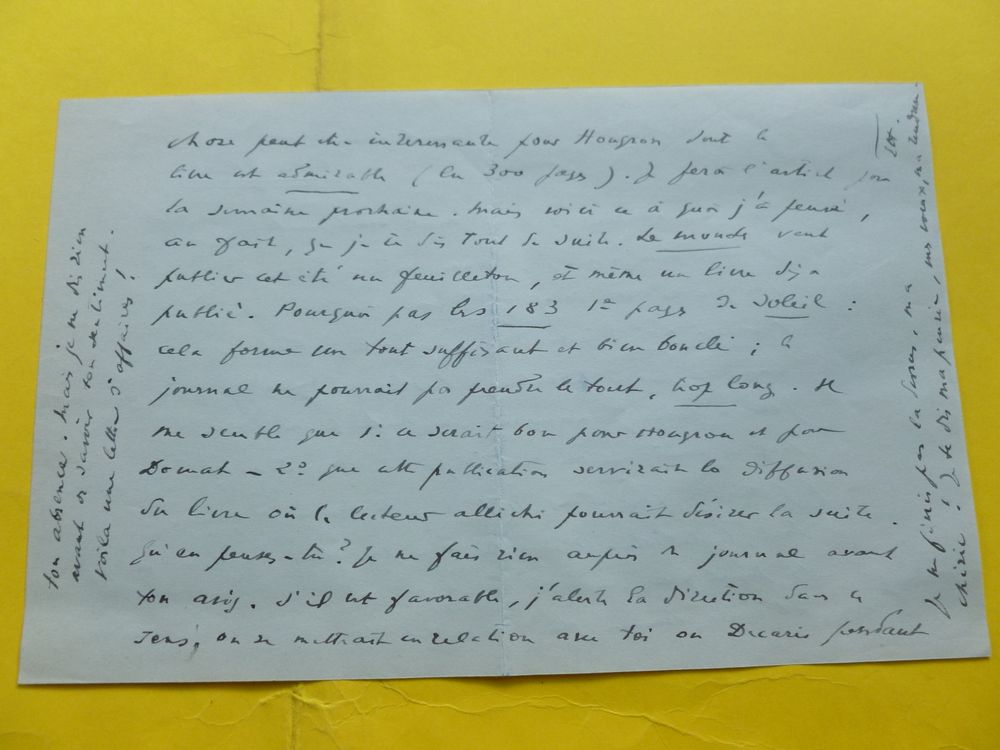 chose peut être intéressante pour Hougron dont le
livre est admirable (lu 300 pages). Je ferai l'article pour
la semaine prochaine. Mais voici ce à quoi j'ai pensé,
au fait, que je te dis tout de suite. Le Monde veut
publier cet été un feuilleton, et même un livre déjà
publié. Pourquoi pas les 183 1e pages de Soleil :
cela forme un tout suffisant et bien bouclé ; le
journal ne pourrait pas prendre le tout, trop long. Il
me semble que 1: ce serait bon pour Hougron et pour
Domat – 2° que cette publication servirait la diffusion
du livre où le lecteur alléché pourrait désirer la suite.
Qu'en penses-tu ? Je ne fais rien auprès du journal avant
ton avis. S'il est favorable, j'alerte la direction dans ce
sens, on se mettrait en relation avec toi ou Decaris pendant
ton absence. Mais je ne dis rien
avant de savoir ton sentiment.
Voilà une lettre d'affaires !
Je ne finis pas là-dessus, ma
chérie ! Je te dis ma pensée, mes voeux, ma tendresse.